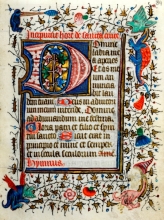 Incipiunt hore de sancta cruce
Domine
labia mea
aperies
Et os me
um an
lau
dem tuam Deus in adiutori
um meum intende Domine
ad adiuvandum me festina
Gloria patri et filio et spiri
tui sancto Sicut erat in
principio et nunc et semper
et in secula seculorum Amen
Hymnus